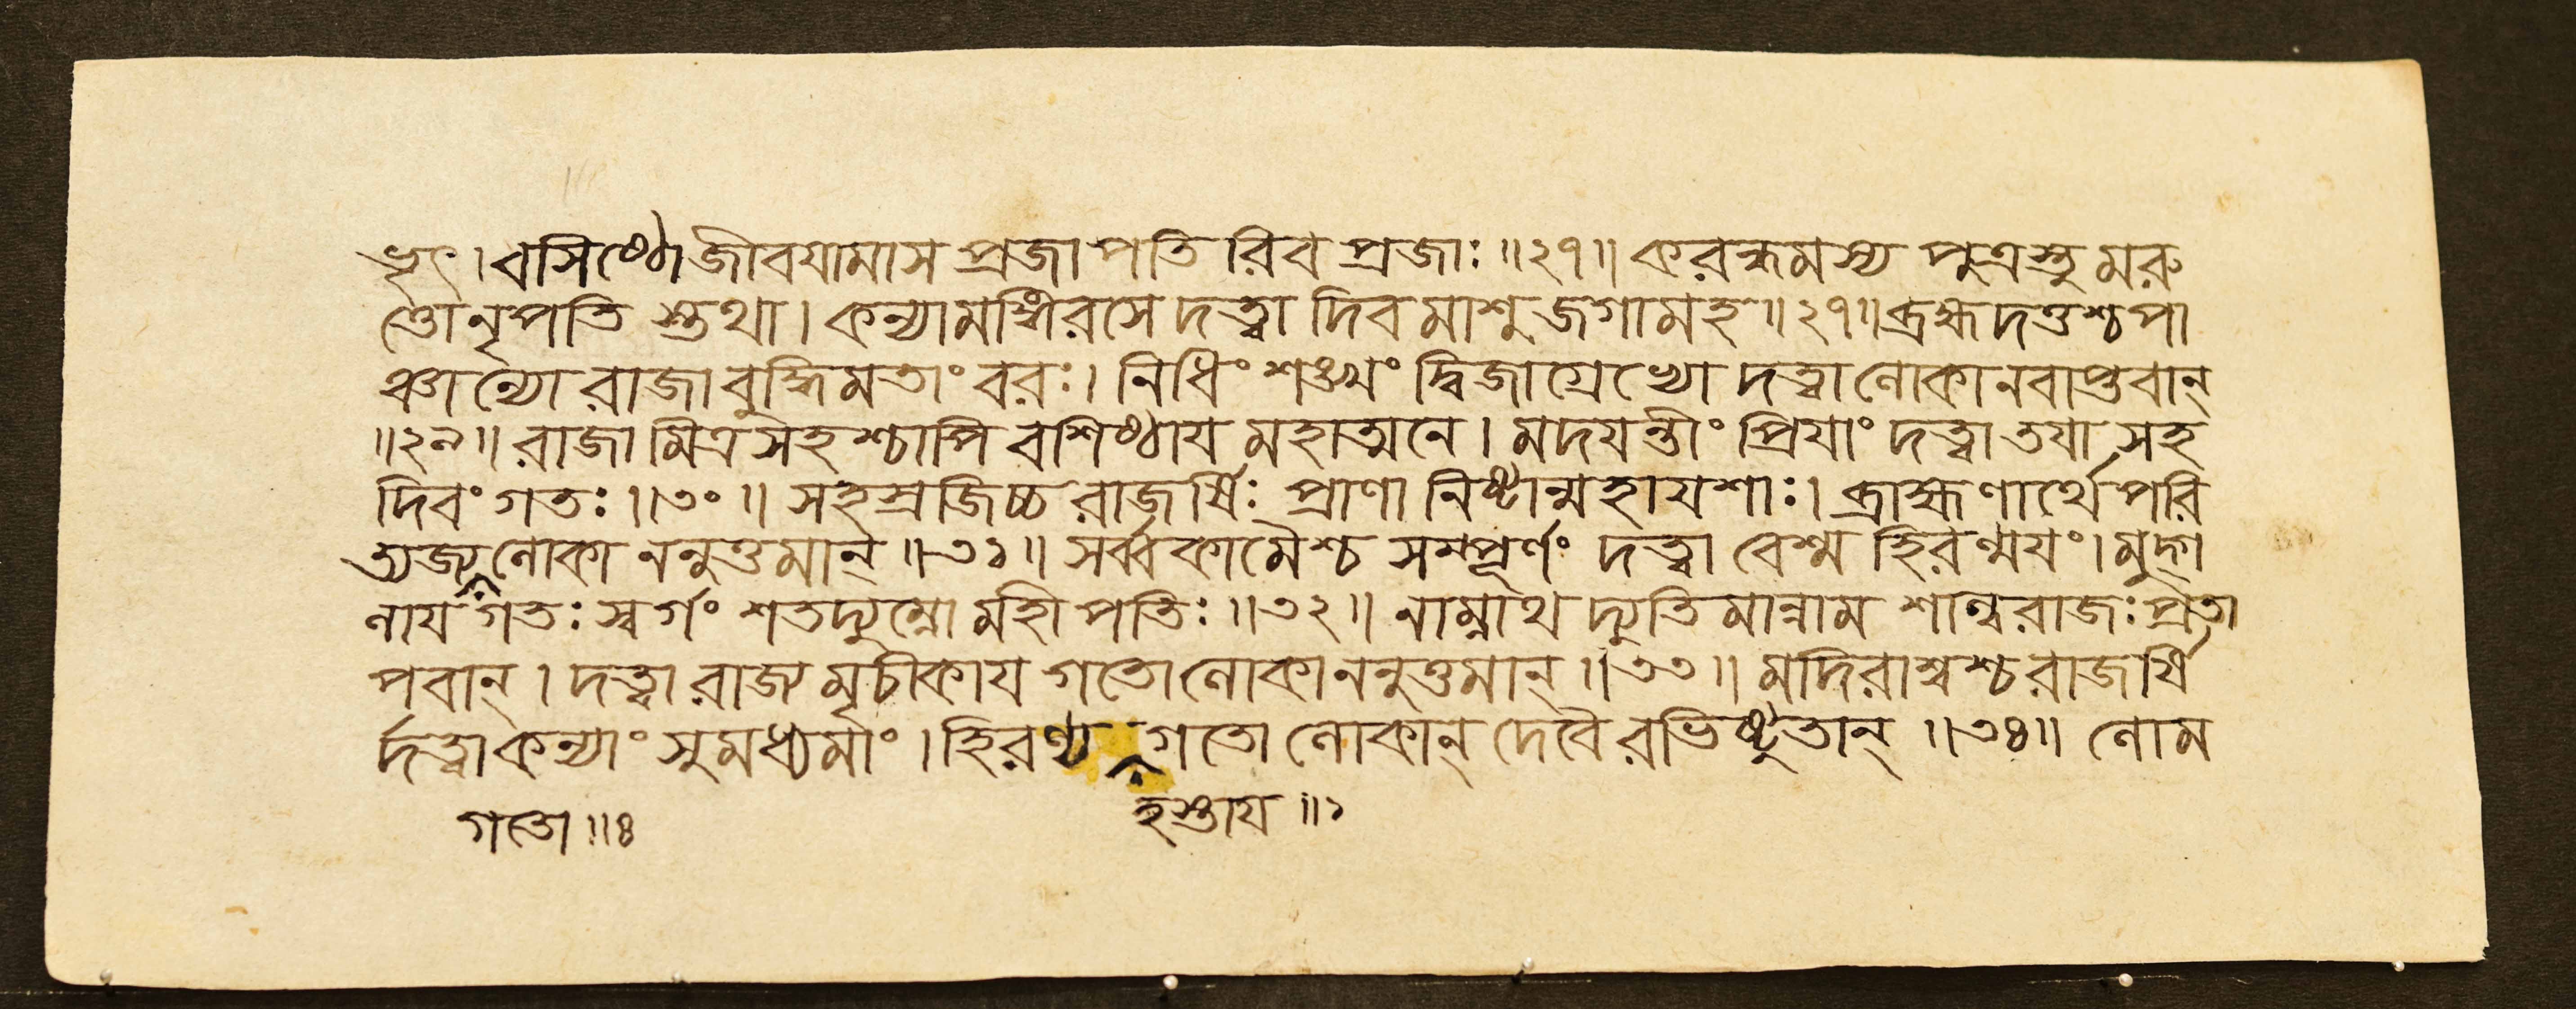 ভূৎ। বসিষ্ঠো জীবযামাস প্রজাপতিরিব প্রজাঃ॥২৭॥ করন্ধমস্য পুত্রস্তু মরু
ত্তো নৃপতিস্তথা। কন্যামঙ্গিরসে দত্ত্বা দিবমাশু জগাম হ॥২৭॥ ব্রহ্মদত্তশ্চ পা
ঞ্চাল্যো রাজা বুদ্ধিমতাং বরঃ। নিধিং শঙ্খং দ্বিজাগ্রেভ্যো দত্বা লোকানবাপ্তবান্
॥২৯॥ রাজা মিত্রসহশ্চাপি বশিষ্ঠায মহাত্মনে। মদযন্তীং প্রিযাং দত্ত্বা তযা সহ
দিবং গতঃ॥৩০॥ সহস্রজিচ্চ রাজর্ষিঃ প্রাণানিষ্টান্মহাযশাঃ। ব্রাহ্মণার্থে পরি
ত্যজ্য লোকাননুত্তমান্॥৩১॥ সর্ব্বকামৈশ্চ সম্পূর্ণং দত্ত্বা বেশ্ম হিরণ্মযং। মুদ্গ
লায গতঃ স্বর্গং শতদ্যুম্নো মহীপতিঃ॥৩২॥ নাম্নাথ দ্যুতিমান্নাম শাল্বরাজঃ প্রতা
পবান্। দত্ত্বা রাজ্যমৃচীকায গতো লোকাননুত্তমান্॥৩৩॥ মদিরাশ্বশ্চ রাজর্ষি
র্দত্ত্বা কন্যাং সুমধ্যমাং। হিরণ্য গতো লোকান্ দেবৈরভিষ্টুতান্॥৩৪॥ লোম
গতো॥৪ হস্তায॥১